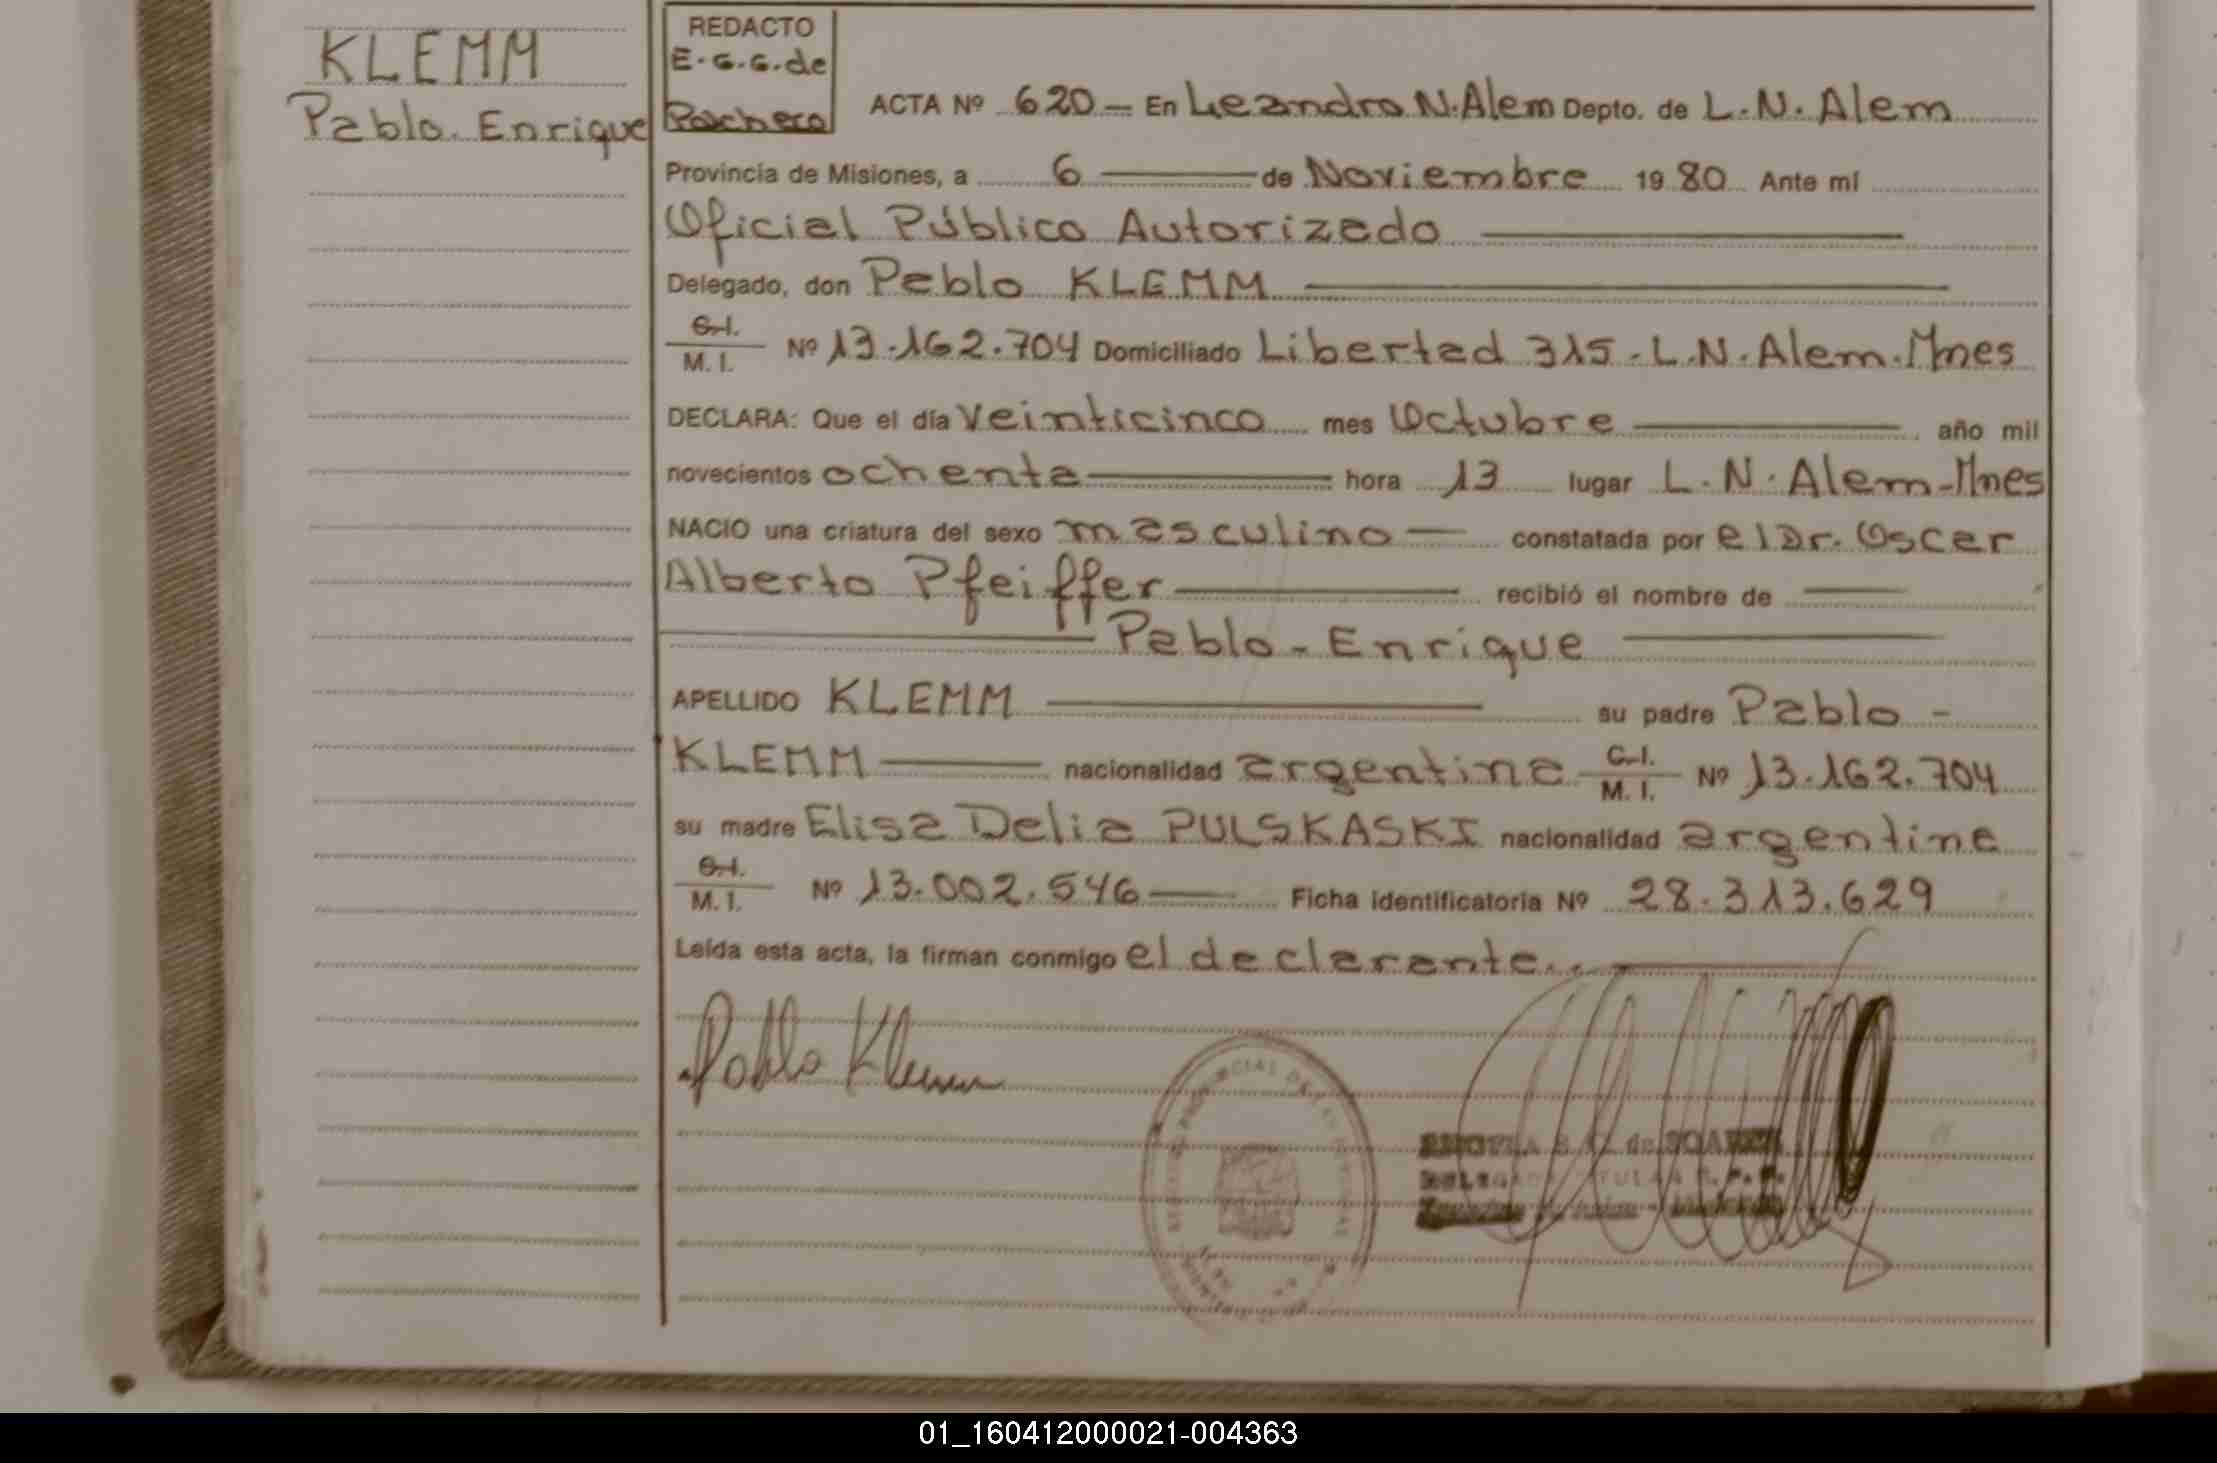 KLEMM
Pablo. Enrique
REDACTO
E.G.G.de
Pacheco
ACTA Nº 620 — En Leandro N. Alem Depto. de L. N. Alem
Provincia de Misiones, a 6 — de Noviembre 1980 Ante mí
Oficial Público Autorizado —
Delegado, don Pablo KLEMM —
C.I.
M. I. Nº 13.162.704 Domiciliado Libertad 315 - L.N. Alem. Mnes
DECLARA: Que el día veinticinco mes Octubre — año mil
novecientos ochenta — hora 13 lugar L. N. Alem - Mnes
NACIO una criatura del sexo masculino — constatada por el Dr. Oscar
Alberto Pfeiffer — recibió el nombre de —
— Pablo - Enrique —
APELLIDO KLEMM — su padre Pablo -
KLEMM — nacionalidad argentina C.I.
M. I. Nº 13.162.704
su madre Elisa Delia PULSKASKI nacionalidad argentina
C.I.
M. I. Nº 13.002.546 — Ficha identificatoria Nº 28.313.629
Leída esta acta, la firman conmigo el declarante. —
Pablo Klemm
de SOAREZ
01_160412000021-004363